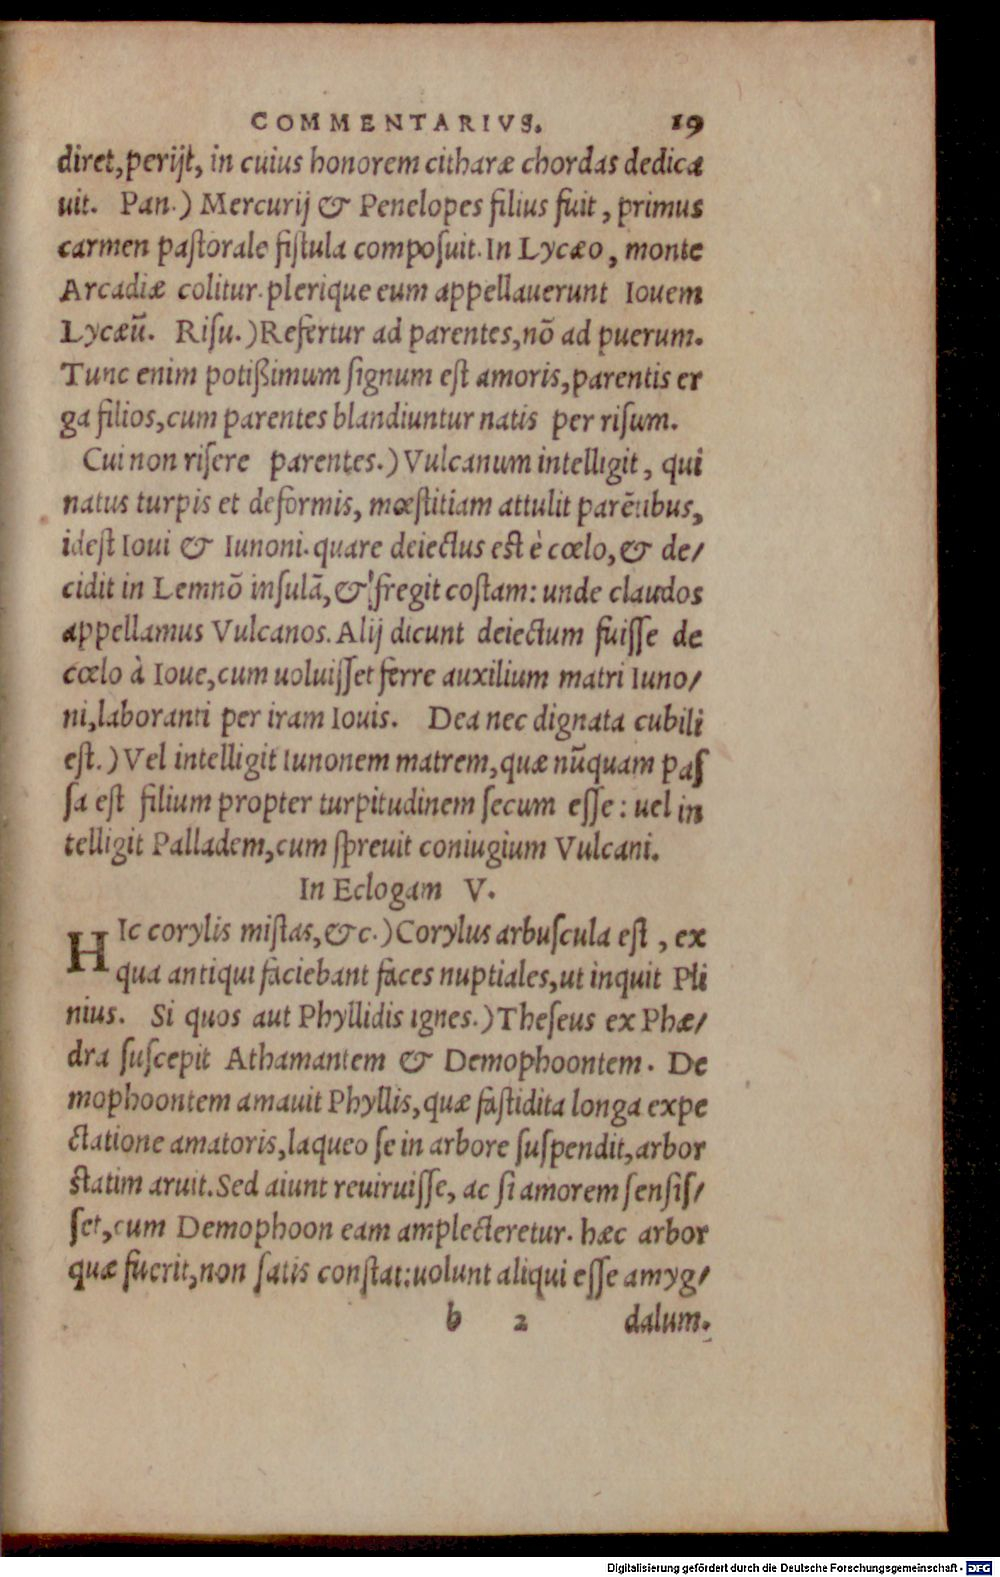 COMMENTARIVS. 19
diret,perijt, in cuius honorem citharæ chordas dedica
uit. Pan.) Mercurij & Penelopes filius fuit, primus
carmen paſtorale fiſtula compoſuit. In Lycæo, monte
Arcadiæ colitur. plerique eum appellauerunt Iouem
Lycæũ. Riſu.) Refertur ad parentes, nõ ad puerum.
Tunc enim potißimum ſignum eſt amoris, parentis er
ga filios, cum parentes blandiuntur natis per riſum.
Cui non riſere parentes.) Vulcanum intelligit, qui
natus turpis et deformis, mœſtitiam attulit parẽtibus,
ideſt Ioui & Iunoni. quare deiectus eſt è cœlo, & de/
cidit in Lemnõ inſulã, & fregit coſtam: unde claudos
appellamus Vulcanos. Alij dicunt deiectum fuiſſe de
cœlo à Ioue, cum uoluiſſet ferre auxilium matri Iuno/
ni, laboranti per iram Iouis. Dea nec dignata cubili
eſt.) Vel intelligit Iunonem matrem, quæ nũquam paſ
ſa eſt filium propter turpitudinem ſecum eſſe: uel in
telligit Palladem, cum ſpreuit coniugium Vulcani.
In Eclogam V.
HIc corylis miſtas, &c.) Corylus arbuſcula eſt, ex
qua antiqui faciebant faces nuptiales, ut inquit Pli
nius. Si quos aut Phyllidis ignes.) Theſeus ex Phæ/
dra ſuſcepit Athamantem & Demophoontem. De
mophoontem amauit Phyllis, quæ faſtidita longa expe
ctatione amatoris, laqueo ſe in arbore ſuſpendit, arbor
ſtatim aruit. Sed aiunt reuiruiſſe, ac ſi amorem ſenſiſ/
ſet, cum Demophoon eam amplecteretur. hæc arbor
quæ fuerit, non ſatis conſtat: uolunt aliqui eſſe amyg/
b 2 dalum.
Digitalisierung gefördert durch die Deutsche Forschungsgemeinschaft - DFG